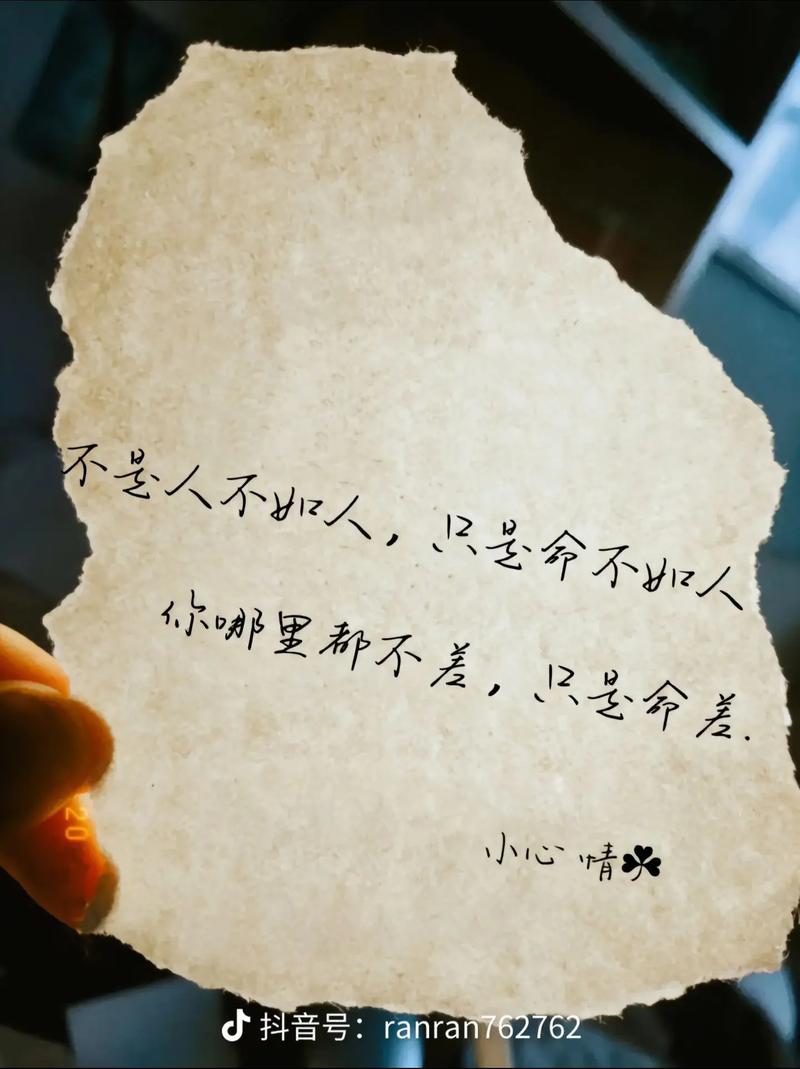 不是人不如人，只是命不如人
你哪里都不差，只是命差.
小心情☘
20
抖音号：ranran762762